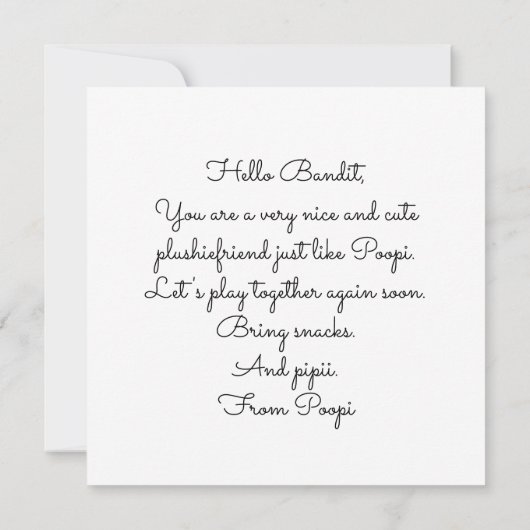 Hello Bandit,
You are a very nice and cute
plushiefriend just like Poopi.
Let's play together again soon.
Bring snacks.
And pipii.
From Poopi